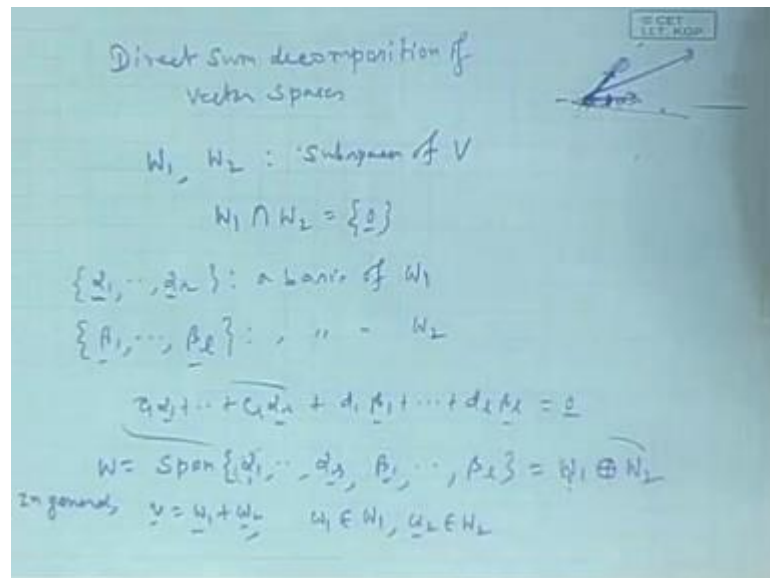 © CET
I.I.T. KGP
Direct Sum decomposition of
vector spaces
W₁, W₂ : Subspaces of V
W₁ ∩ W₂ = {0}
{α₁, ⋯, αᵣ} : a basis of W₁
{β₁, ⋯, βₗ} : , " - W₂
c₁α₁ + ⋯ + cᵣαᵣ + d₁β₁ + ⋯ + dₗβₗ = 0
W = Span{α₁, ⋯, αᵣ, β₁, ⋯, βₗ} = W₁ ⊕ W₂
In general, v = w₁ + w₂, w₁ ∈ W₁, w₂ ∈ W₂